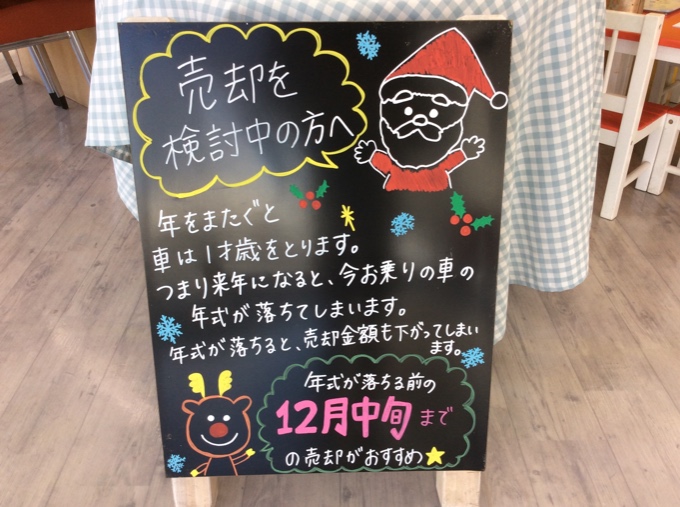 売却を
検討中の方へ
年をまたぐと
車は1才歳をとります。
つまり来年になると、今お乗りの車の
年式が落ちてしまいます。
年式が落ちると、売却金額も下がってしまい
ます。
年式が落ちる前の
12月中旬まで
の売却がおすすめ